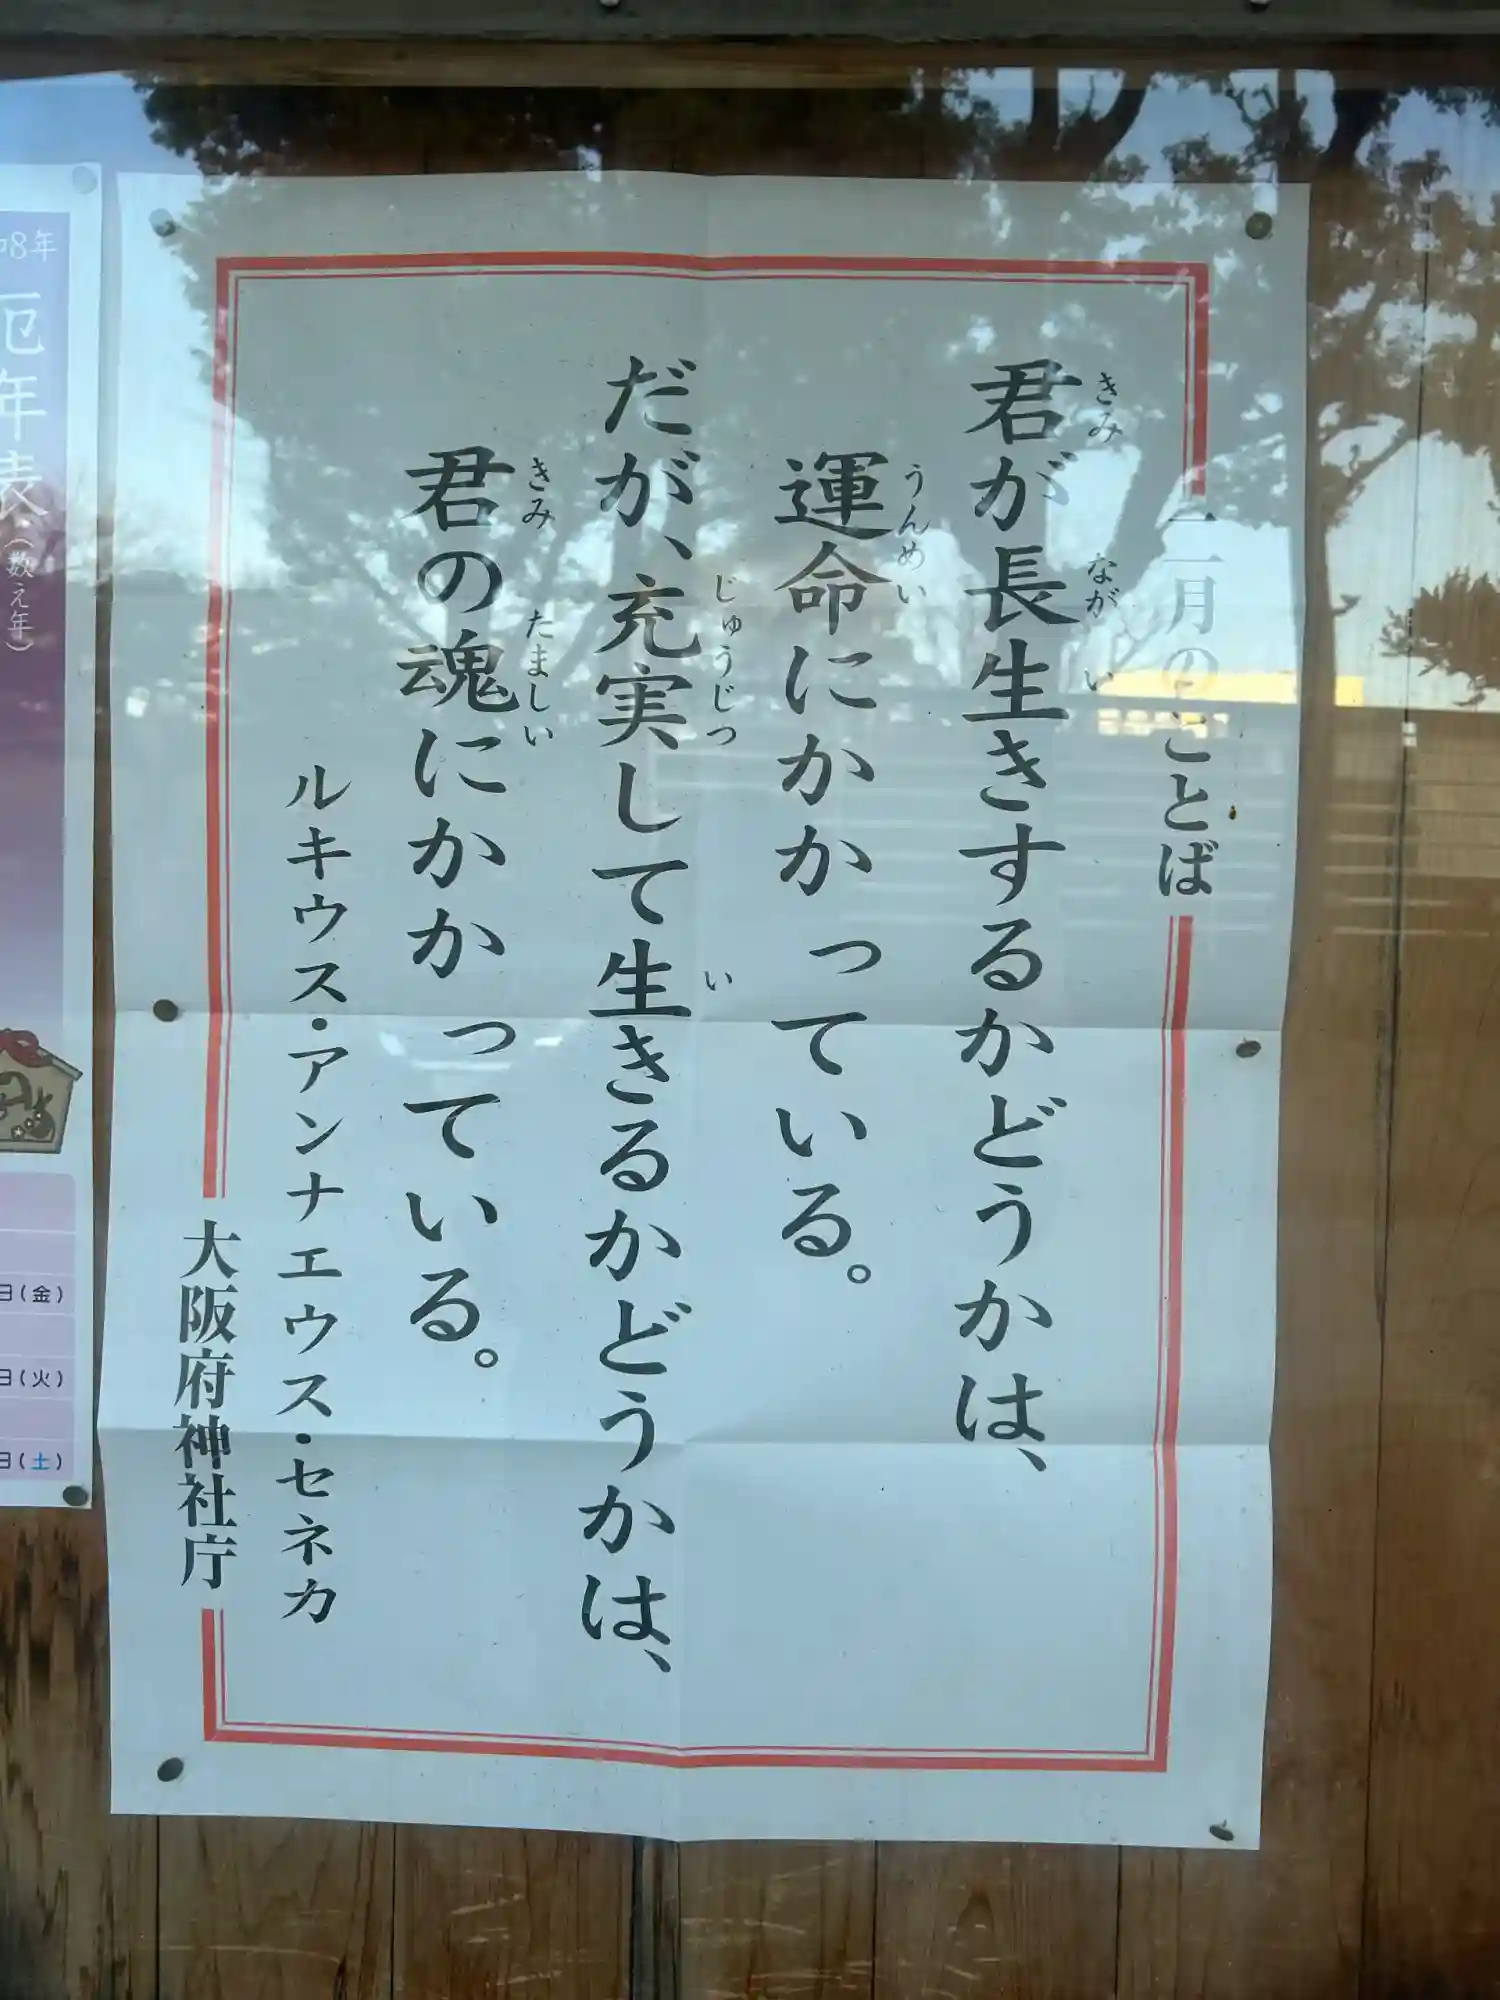 二月のことば
きみ なが い
君が長生きするかどうかは、
うんめい
運命にかかっている。
じゅうじつ い
だが、充実して生きるかどうかは、
きみ たましい
君の魂にかかっている。
ルキウス・アンナエウス・セネカ
大阪府神社庁
8年
厄年表(数え年)
日(金)
日(火)
日(土)